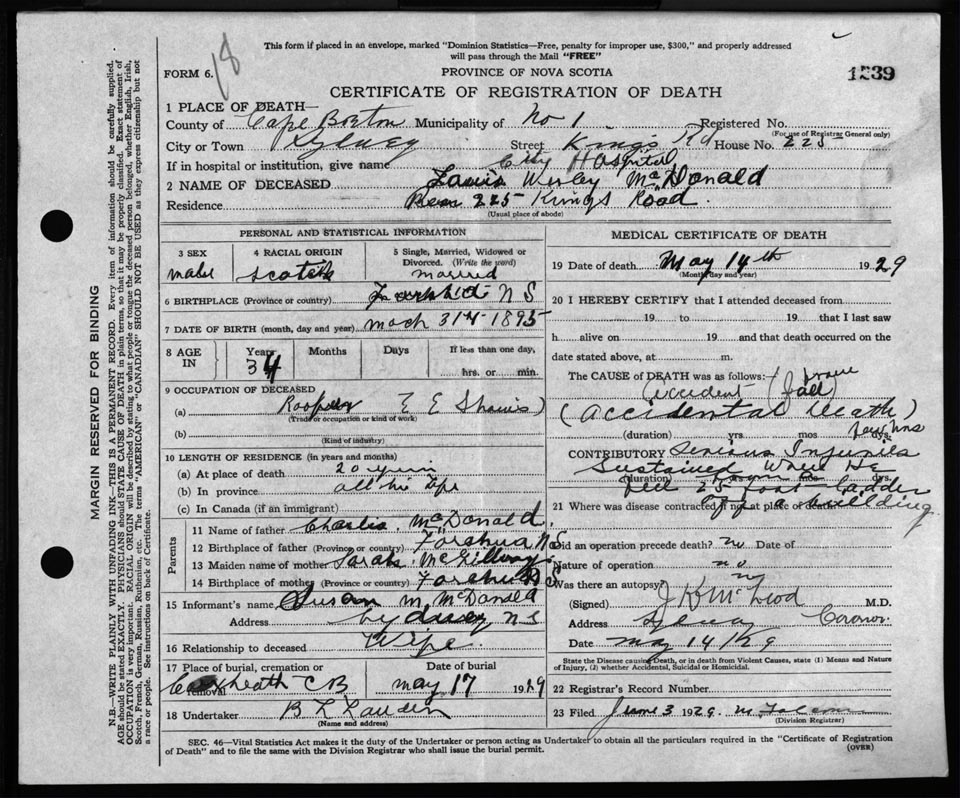 This form if placed in an envelope, marked "Dominion Statistics—Free, penalty for improper use, $300," and properly addressed
will pass through the Mail "FREE"
18
FORM 6.
PROVINCE OF NOVA SCOTIA
1239
CERTIFICATE OF REGISTRATION OF DEATH
1 PLACE OF DEATH—
County of Cape Breton Municipality of No 1 Registered No.
(For use of Registrar General only)
City or Town Sydney Street Kings Rd House No. 225
If in hospital or institution, give name City Hospital
2 NAME OF DECEASED Wesley McDonald
Residence Rear 225 Kings Road.
(Usual place of abode)
PERSONAL AND STATISTICAL INFORMATION
3 SEX
male
4 RACIAL ORIGIN
scotch
5 Single, Married, Widowed or Divorced. (Write the word)
married
6 BIRTHPLACE (Province or country) N S
7 DATE OF BIRTH (month, day and year) mach 31st 1895
8 AGE IN
Years Months Days If less than one day,
34 hrs. or min.
9 OCCUPATION OF DECEASED
(a) Roofer E E
(Trade or occupation or kind of work)
(b)
(Kind of industry)
10 LENGTH OF RESIDENCE (in years and months)
(a) At place of death 20 years
(b) In province all his life
(c) In Canada (if an immigrant)
Parents
11 Name of father Charles McDonald
12 Birthplace of father (Province or country) Forshua N S
13 Maiden name of mother Sarah
14 Birthplace of mother (Province or country) Forshua N S
15 Informant's name Susan M McDonald
Address Sydney N S
16 Relationship to deceased Wife
17 Place of burial, cremation or removal
Coxheath C B
Date of burial
May 17 1929
18 Undertaker B L
(Name and address)
MEDICAL CERTIFICATE OF DEATH
19 Date of death May 14th 1929
(Month, day and year)
20 I HEREBY CERTIFY that I attended deceased from
19 to 19 that I last saw
h alive on 19 and that death occurred on the
date stated above, at m.
The CAUSE OF DEATH was as follows:
Accident (fall)
(Accidental Death)
(duration) yrs mos days. few hrs
CONTRIBUTORY Serious Injuries
Sustained When He
(duration)
fell 25 foot ladder
off a building
21 Where was disease contracted if not at place of death
Did an operation precede death? no Date of
Nature of operation no
Was there an autopsy? no
(Signed) J K McLeod M.D.
Address Sydney Coroner.
Date May 14/29
State the Disease causing Death, or in death from Violent Causes, state (1) Means and Nature
of Injury, (2) whether Accidental, Suicidal or Homicidal.
22 Registrar's Record Number
23 Filed June 3 1929
(Division Registrar)
SEC. 46—Vital Statistics Act makes it the duty of the Undertaker or person acting as Undertaker to obtain all the particulars required in the "Certificate of Registration
of Death" and to file the same with the Division Registrar who shall issue the burial permit.
(OVER)
MARGIN RESERVED FOR BINDING
N.B.—WRITE PLAINLY WITH UNFADING INK—THIS IS A PERMANENT RECORD. Every item of information should be carefully supplied.
AGE should be stated EXACTLY. PHYSICIANS should STATE CAUSE OF DEATH in plain terms, so that it may be properly classified. Exact statement of
OCCUPATION is very important. RACIAL ORIGIN will be described by stating to what people or tongue the deceased person belonged, whether English, Irish,
Scotch, French, German, Russian, Ruthenian, etc. The terms "AMERICAN" or "CANADIAN" SHOULD NOT BE USED as they express citizenship but not
a race or people. See instructions on back of Certificate.